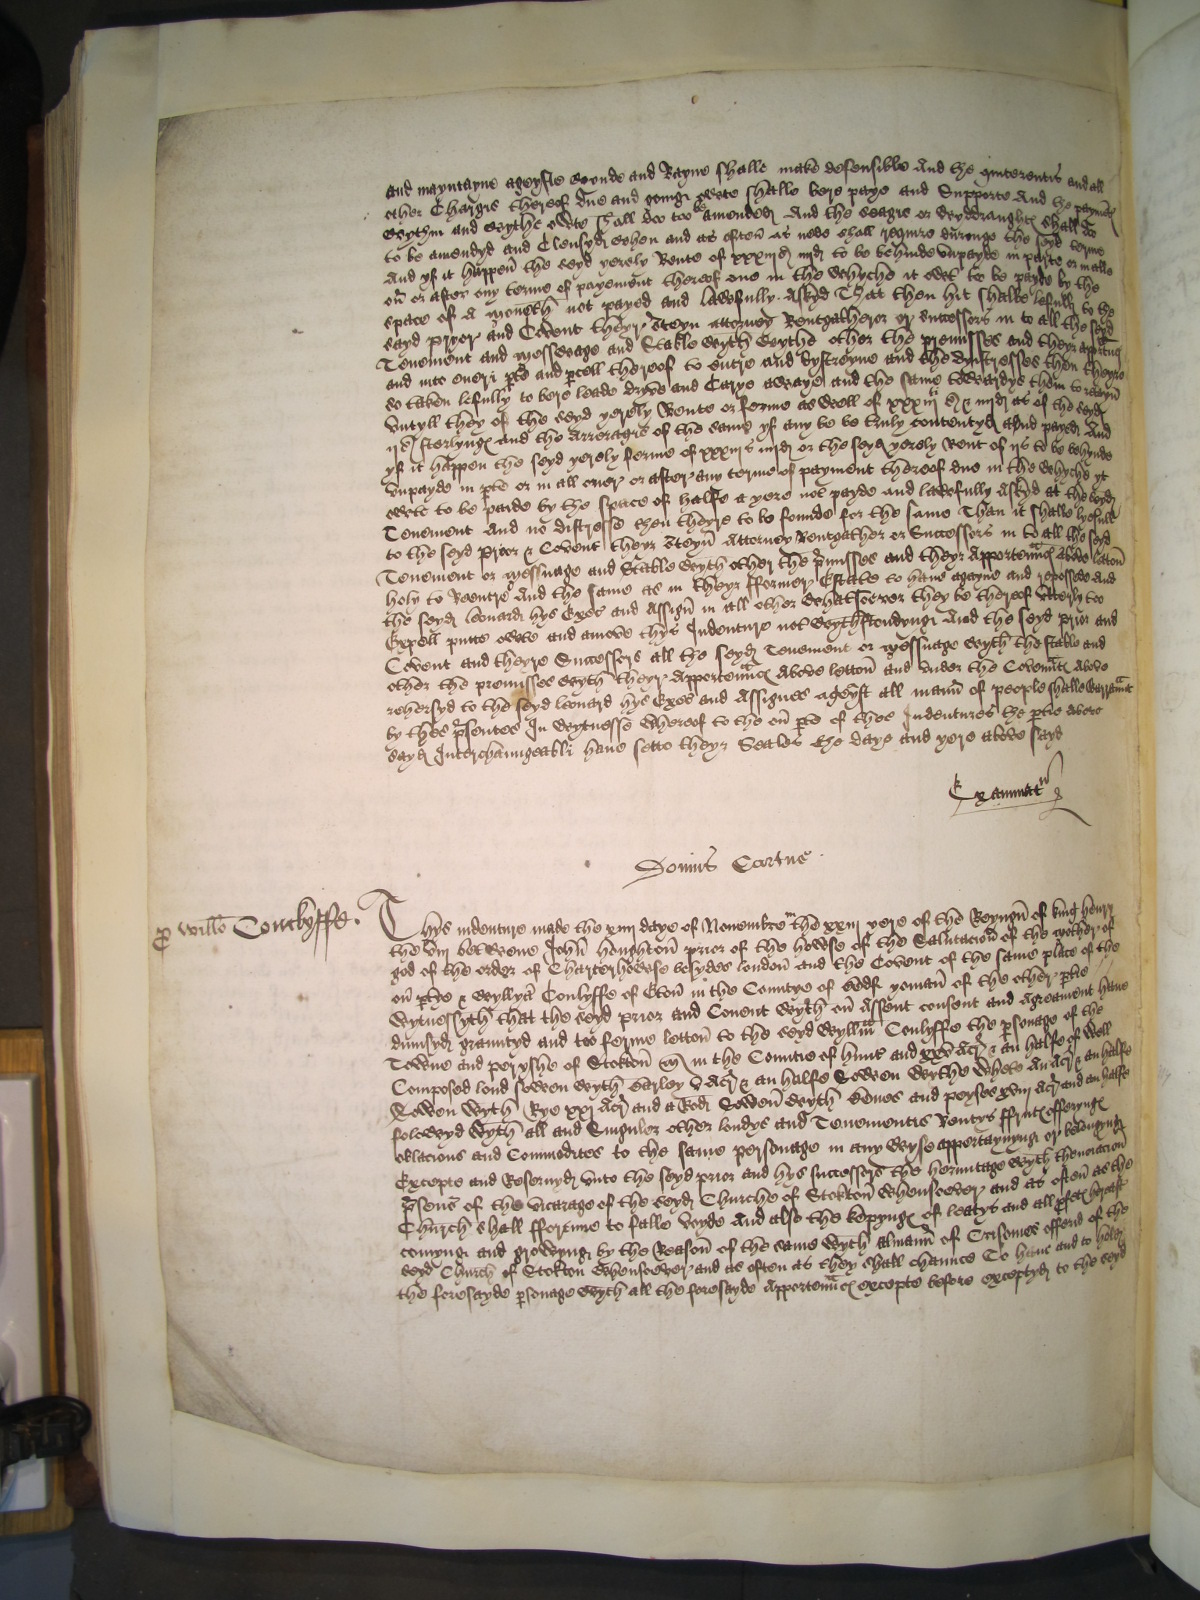 and mayntayne ageynste wynde and Rayne shalle make defensible And the quiterentis and all
other Chargis thereof due and goinge owte shalle bere paye and Supporte And the paymēt
wythin and wythe owte shall doo too be amended And the seagis or wyddraughtꝭ shall do
to be amendyd and Clensyd when and as often as nede shall requyre duringe the seyd terme
And yf it happen the seyd yerely Rente of xxxiijs iiijd to be behinde unpayde in parte or in alle
on or after eny terme of payement thereof one in the whyche it owt to be payde by the
space of a moneth not payed and lawfully Askyd That then hit shalbe lefull to the
sayd pryor and Covent theyr Steyn attorney Rentgatherer or successors in to all the seyd
Tenement and messeage and Stable wyth wythe other the premisses and theyr apprtinꝭ
and into eueri pte and pcell thereof to entre and dystreyne and the dystresses then theyre
so taken lefully to bere leade dryve and Carye awaye and the same towardys them to reteyn
untyll they of the seyd yerely Rente or ferme as well of xxxiijs iiijd as of the seyd
ijs sterlyngꝭ and the arreragis of the same yf any be be truly contentyd And payed And
yf it happen the seyd yerely ferme of xxxiijs iiijd or the seyd yerely Rent of ijs to be behynde
unpayde in pte or in all over or after any terme of payment thereof due in the whyche yt
owte to be paide by the space of halfe a yere not payde and lawefully Askyd at the seyd
Tenement And no distresse then theyre to be founde for the same Than it shalle lyefull
to the seyd prior & Covent theyr Steyn Attorney Rentgather or Successors in to all the seyd
Tenement or messuage and Stable wyth other the pmisses and theyr Apportenncꝭ Above letton
holy to Reentre And the same as in theyr fformer Estate to have agayne and repossede And
the seyd leonard hys Exes and Assign in all other whatsoever they be thereof utterly too
Expell putte owte and ameve thys Indenture not wythstondyngꝭ And the seyd prior and
Covent and theyre Successors all the seyd Tenement or messuage wyth the stable and
other the premisses wyth theyr Apportenncꝭ Above letton and under the Covenntꝭ Above
rehersyd to the seyd leonard hys Exes and Assignes ageyst all mann of people shalle warrannt
by thes psentes In wytnesse whereof to the on pte of thes Indentures the ptie above
sayd Interchaungeabli have sette theyr Seales the daye and yere above sayd
Examinatr
Domus Cartus
p Willo Conclyffe.
Thys indenture made the xiiij daye of Novembre the xxiij yere of the Reyngn of king henry
the viij betweene John Houghton prior of the howse of the Salutacion of the mother of
god of the order of Charterhowse besydes london and the Covent of the same place of the
on ptye & Wyllya Conlyffe of Eton in the Countye of Bedf yoman of the other ptie
Wytnessyth that the seyd prior and Covent wyth on Assent consent and Agreament have
dimisyd grauntyd and too ferme letton to the seyd Wyllm Conlyffe the psonage of the
Towne and peryshe of Stokton in the Countie of hunt and xxv Acꝭ & an halfe of well
Composed lond sowen wyth Barley v Acꝭ & an halfe Sowen wythe whete An Acꝭ & an halfe
Sowen wyth Rye xxj Acꝭ and a Rode Sowen wyth benes and peyses xviij Acꝭ and an halfe
foloweyd wyth all and Singuler other londys and Tenementis Rentys ffrutꝭ offeryngꝭ
oblacions and Commodites to the same personage in any wyse apportaynynge or belongyngꝭ
Excepte and Reservyd unto the seyd prior and hys successors the hermitage wyth thenoiacion
psone of the vicarage of the seyd Churche of Stokton whensoever and as often as the
Church shall ffortune to falle voyde And also the kepyngꝭ of leatys and all pfetꝭ herafter
comyngꝭ and growynge by the Reason of the same wyth almann of Crisomes offerd of the
seyd Church of Stokton whensoever and as often as they shall chaunce To have and to hold
the foresayde psonage wyth all the foresayde Apportenncꝭ excepte before exceptyd to the seyd